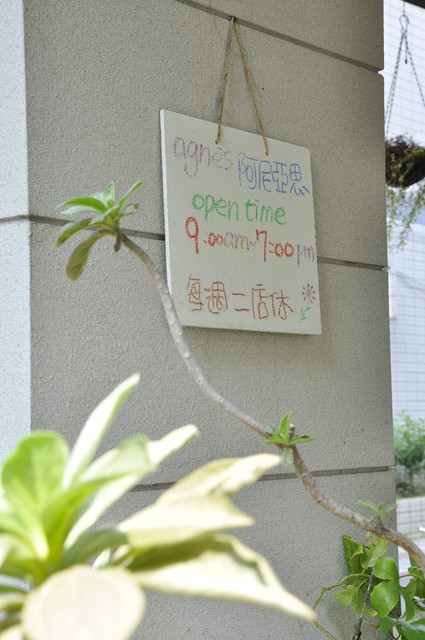 agnès 阿尼亞思
open time
9.00am~7:00pm
每週二店休